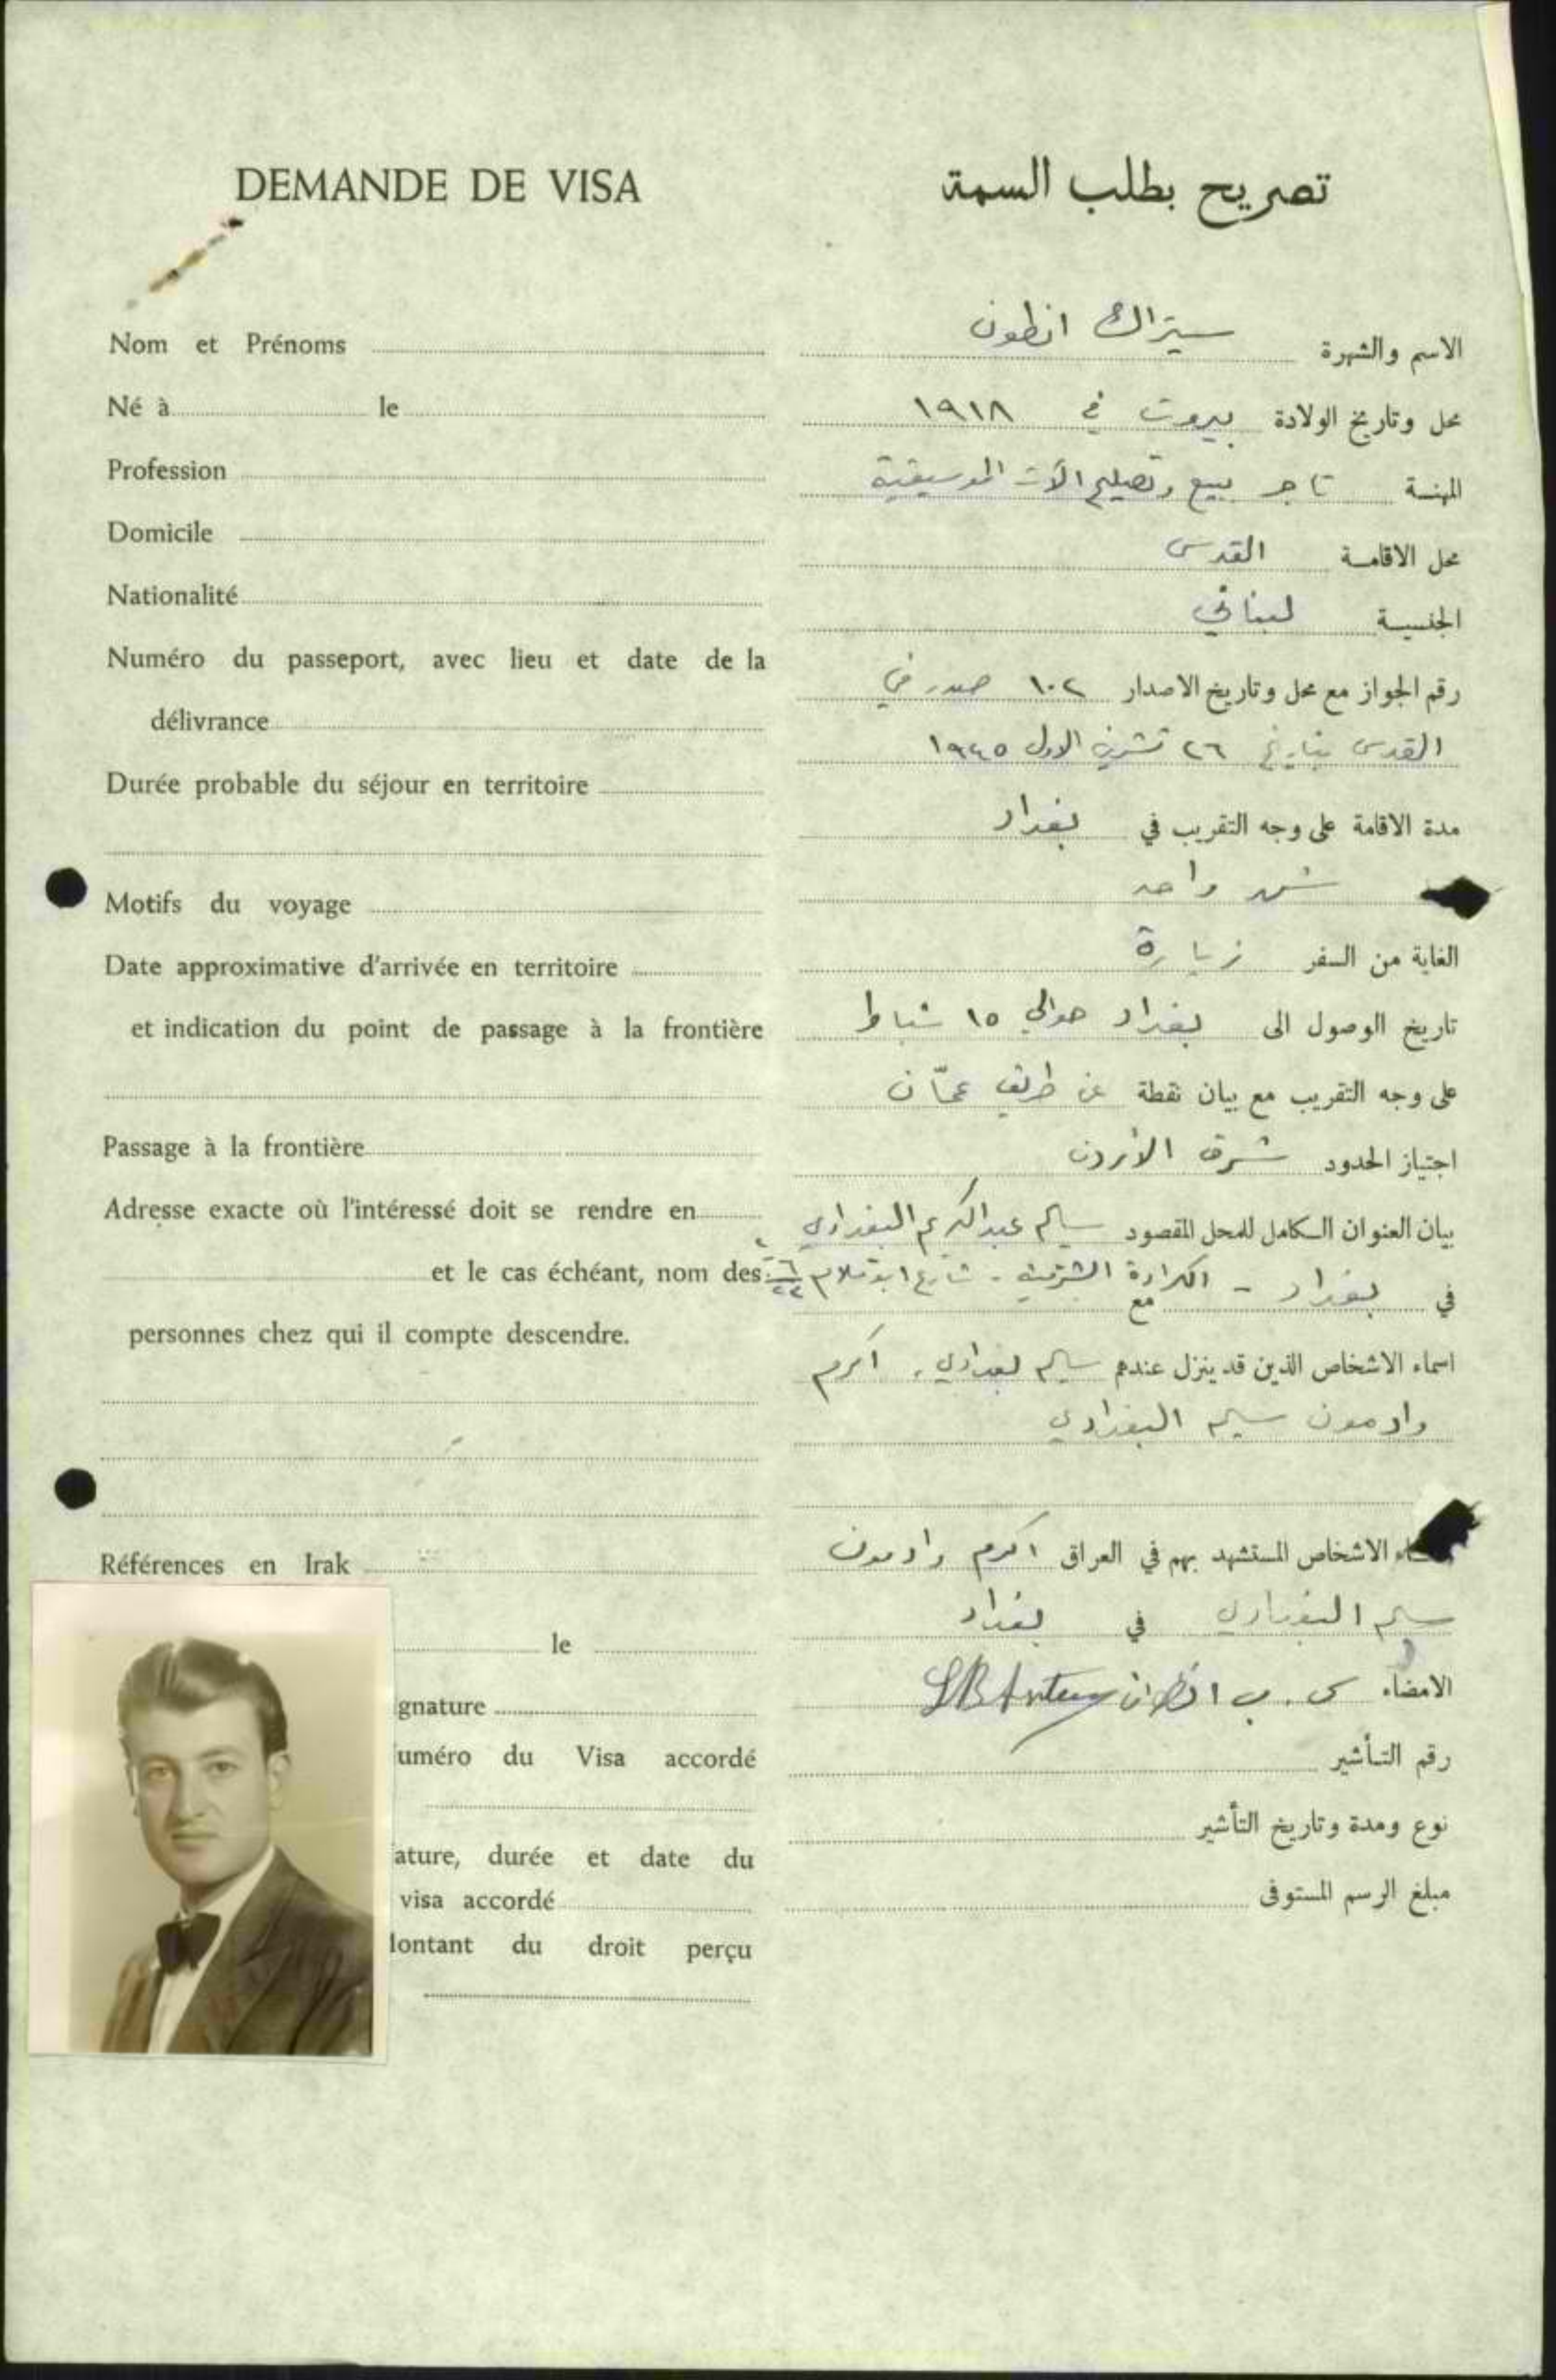 DEMANDE DE VISA
Nom et Prénoms
Né à le
Profession
Domicile
Nationalité
Numéro du passeport, avec lieu et date de la
délivrance
Durée probable du séjour en territoire
Motifs du voyage
Date approximative d'arrivée en territoire
et indication du point de passage à la frontière
Passage à la frontière
Adresse exacte où l'intéressé doit se rendre en
et le cas échéant, nom des
personnes chez qui il compte descendre.
Références en Irak
le
gnature
uméro du Visa accordé
ature, durée et date du
visa accordé
ontant du droit perçu
تصريح بطلب السمة
الاسم والشهرة سيراك انطون
محل وتاريخ الولادة بيروت في ١٩١٨
المهنة تاجر بيع وتصليح الآت الموسيقية
محل الاقامة القدس
الجنسية لبناني
رقم الجواز مع محل وتاريخ الاصدار ١٠٢ صدر في
القدس بتاريخ ٢٦ تشرين الاول ١٩٤٥
مدة الاقامة على وجه التقريب في بغداد
شهر واحد
الغاية من السفر زيارة
تاريخ الوصول الى بغداد حوالي ١٥ شباط
على وجه التقريب مع بيان نقطة عن طريق عمّان
اجتياز الحدود شرق الأردن
بيان العنوان الكامل للمحل المقصود سليم عبد الكريم البغدادي
في بغداد - الكرادة الشرقية - شارع ابو
اسماء الاشخاص الذين قد ينزل عندهم سليم بغدادي، اكرم
وادمون سليم البغدادي
اء الاشخاص المستشهد بهم في العراق اكرم وادمون
سليم البغدادي في بغداد
الامضاء س. ب انطون
رقم التأشير
نوع ومدة وتاريخ التأشير
مبلغ الرسم المستوفى